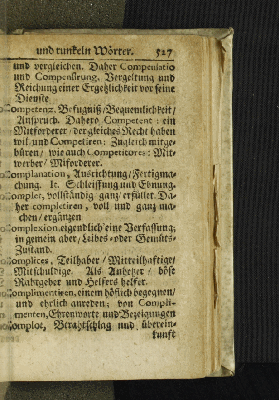 und tunkeln Wörter. 527
und vergleichen. Daher Compensatio
und Compensirung, Vergeltung und
Reichung einer Ergetzlichkeit vor seine
Dienste.
Competenz, Befugniß/Bequemlichkeit/
Anspruch. Dahero Competent: ein
Mitforderer/ der gleiches Recht haben
wil und Competiren: Zugleich mitge-
büren/ wie auch Competitores: Mit-
werber/ Mitforderer.
Complanation, Ausrichtung/ Fertigma-
chung. It. Schleiffung und Ebnung.
Complet, vollständig/ganz/erfüllet. Da-
her completiren, voll und ganz ma-
chen/ ergänzen
Complexion, eigendlich eine Verfassung,
in gemein aber/ Leibes- oder Gemüts-
Zustand.
Complices, Teilhaber/ Mitteilhaftige/
Mitschuldige. Als Anhetzer/ böse
Rahtgeber und Helfers helfer.
Complimentiren, einem höflich begegnen/
und ehrlich anreden; von Compli-
menten, Ehrenworte und Bezeigungen
Complot, Berahtschlag und überein-
kunft